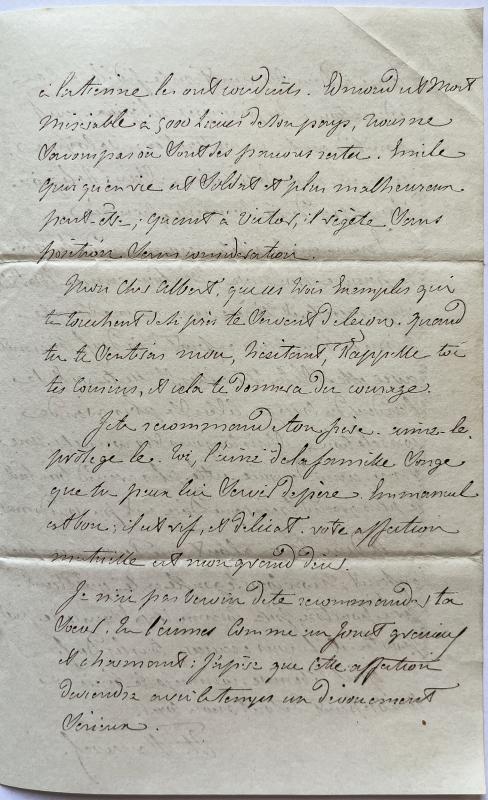 à la tienne les ont conduits. Edmond est mort
misérable à 5000 lieues de son pays, nous ne
savons pas où sont ses pauvres restes. Emile
quoiqu'en vie est soldat et plus malheureux
peut-être ; quant à Victor, il végète sans
position sans considération.
Mon cher Albert, que ces trois exemples qui
te touchent de si près te servent de leçon. Quand
tu te sentiras mou, hésitant, rappelle toi
tes cousins, et cela te donnera du courage.
Je te recommande ton frère. aime-le
protège le. Toi, l'aîné de la famille songe
que tu peux lui servir de père. Emmanuel
est bon ; il est vif, et délicat. votre affection
mutuelle est mon grand désir.
Je n'ai pas besoin de te recommander ta
soeur. Tu l'aimes comme un jouet gracieux
et charmant : j'espère que cette affection
deviendra avec le temps un dévouement
sérieux.